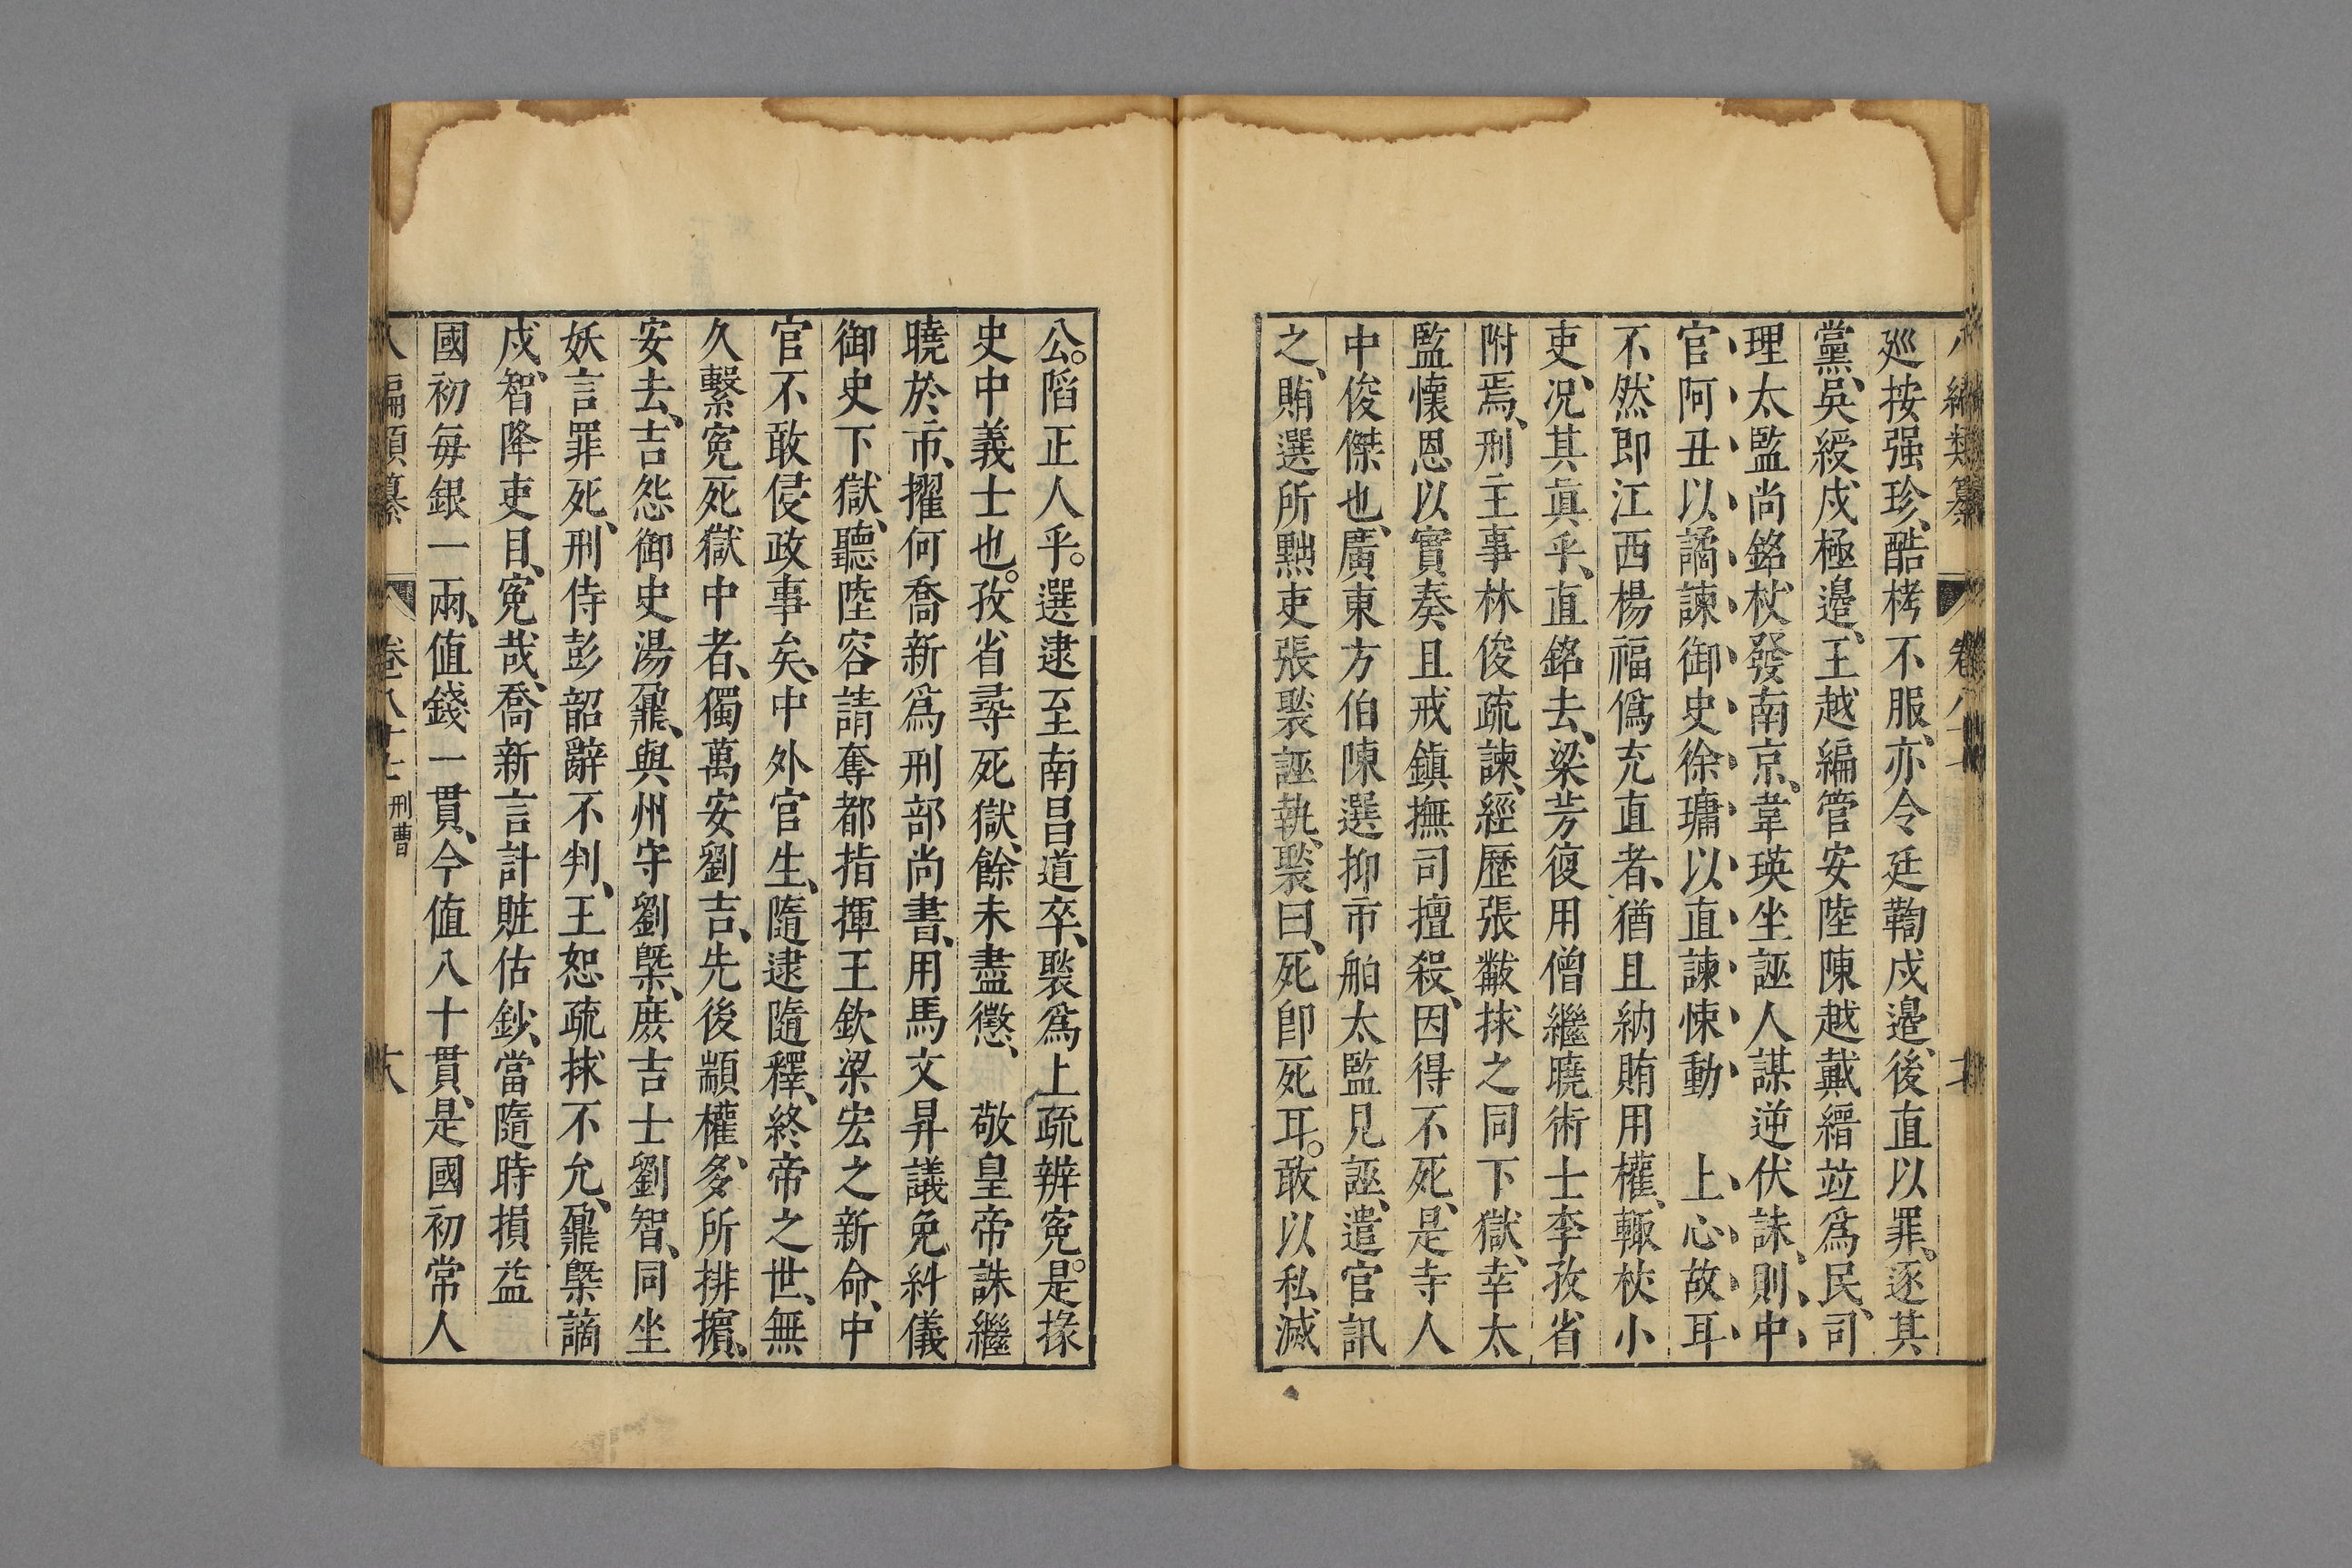 廵按强珍、酷栲不服、亦令廷鞫戍邉、後直以罪、逐其
黨、吳綬戍極邉、王越編管安陸、陳越戴縉竝爲民、司
理太監尚銘、杖發南京、韋瑛坐誣人謀逆伏誅、則中
官阿丑以譎諫、御史徐鏞以直諫悚動　上心故耳
不然即江西楊福僞充直者、猶且納賄用權、輙杖小
吏、况其眞乎、直銘去、梁芳復用僧繼曉術士李孜省
附焉、刑主事林俊疏諫、經歷張黻捄之同下獄、幸太
監懷恩以實奏且戒鎮撫司擅殺、因得不死、是寺人
中俊傑也、廣東方伯陳選抑市舶太監見誣、遣官訊
之、賄選所黜吏張褧誣執、褧曰、死即死耳。敢以私滅
公。陷正人乎。選逮至南昌道卒、褧爲上疏辨寃。是掾
史中義士也。孜省尋死獄、餘未盡懲、　敬皇帝誅繼
曉於市、擢何喬新爲刑部尚書、用馬文昇議免糾儀
御史下獄、聽陸容請奪都指揮王欽梁宏之新命、中
官不敢侵政事矣、中外官生、隨逮隨釋、終帝之世、無
久繫寃死獄中者、獨萬安劉吉、先後顓權、多所排擯、
安去、吉怨御史湯鼐、與州守劉槩、庶吉士劉智、同坐
妖言罪死、刑侍彭韶辭不判、王恕疏捄不允、鼐槩謫
戍、智降吏目、寃哉、喬新言計賍估鈔、當隨時損益
國初每銀一兩、值錢一貫、今值八十貫、是國初常人
八編類纂　卷八十七　刑曹　十八